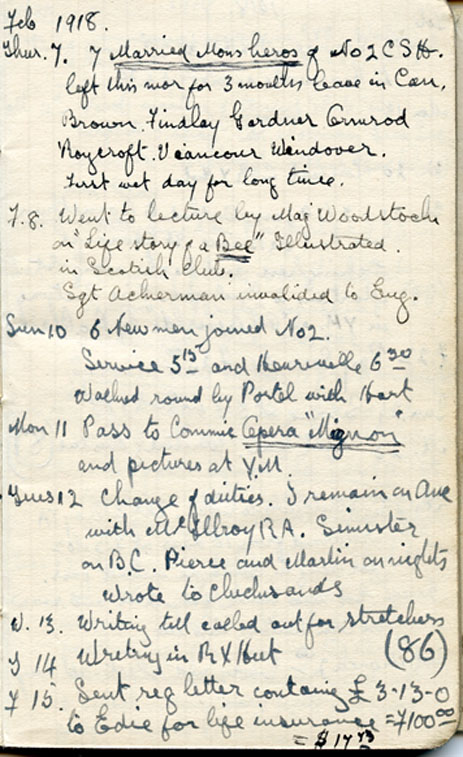 Feb 1918.
Thur. 7. 7 Married Mons heros of No 2 C S H.
left this mor for 3 months leave in Can.
Brown. Findlay Gardner Ormrod
Roycroft. Viancour Windover.
First wet day for long time.
F. 8. Went to lecture by Maj Woodstock
on "Life story of a Bee" Illustrated.
in Scotish Club.
Sgt Ackerman invalided to Eng.
Sun 10 6 New men joined No 2.
Service 5 15 and 6 30
Walked round by Portel with Hart
Mon 11 Pass to Commic Opera "Mignon"
and pictures at Y.M.
Tues 12 Change of duties. I remain on
with McIllroy R A. Simister
on B.C. Pierce and Martin on nights
Wrote to
W. 13. Writing till called out for stretchers
T 14 Writing in RX Hut (86)
F 15. Sent reg letter containg £ 3-13-0
to Edie for life insurance = 7100 00
= $ 17 73